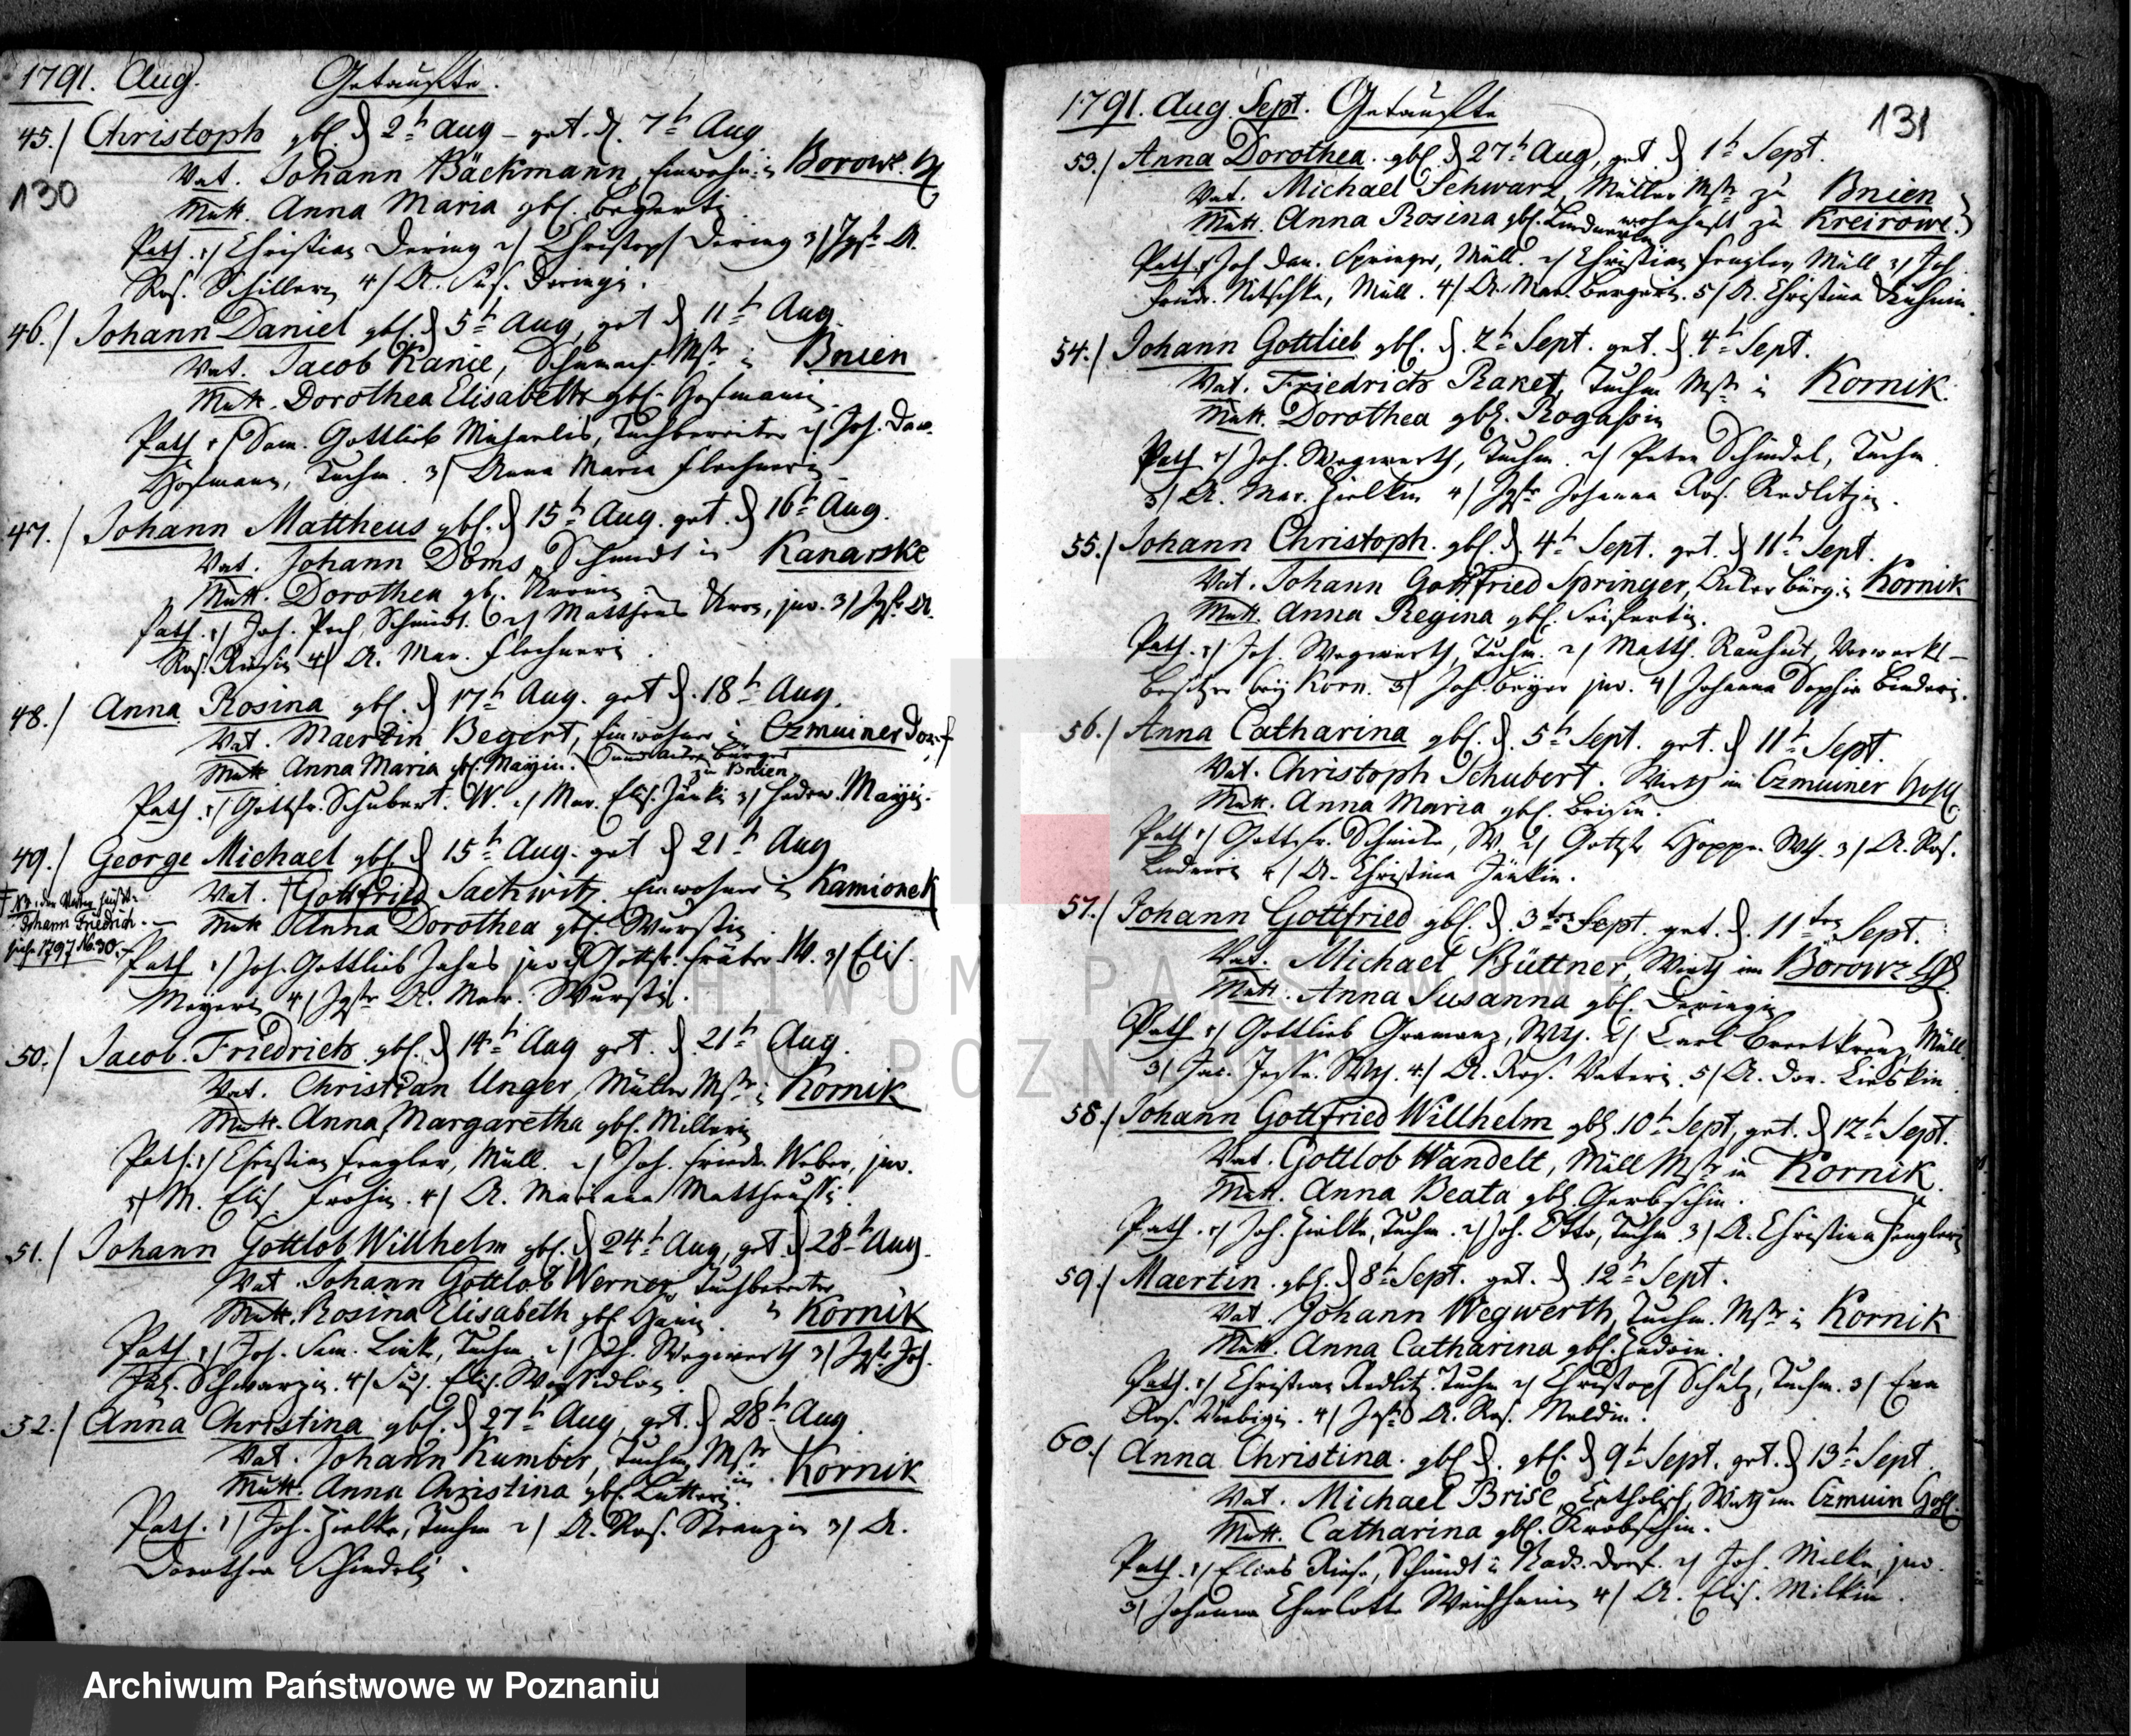 1791. Aug. Getaufte.
45./ Christoph geb. d. 2t Aug - get. d. 7t Aug.
130
Vat. Johann Bäckmann, Einwohn. in Borow. H
Mutt. Anna Maria geb. Begertin
Path. 1/ Christian Dering 2/ Christoph Dering 3/ Jgfr. A.
Ros. Schillern 4/ A. Sus. Deringin.
46./ Johann Daniel geb. d. 5t Aug, get d 11t Aug.
Vat. Jacob Kanie, Schumach. Mstr in Bnien
Mutt. Dorothea Elisabeth geb. Hofmannin.
Path 1/ Dan. Gottlieb Michaelis, Tuchbereiter 2/ Joh. Dan.
Hofmann, Tuchm. 3/ Anna Maria Flechnerin
47./ Johann Mattheus geb. d 15t Aug. get. d 16t Aug.
Vat. Johann Doms, Schmidt in Kanarske
Mutt. Dorothea geb.
Path. 1/ Joh. Schmidt. 2/ Mattheus juv. 3/ Jgfr. A.
Ros. 4/ A. Mar. Flechnerin.
48./ Anna Rosina geb. d 17t Aug. get d. 18t Aug.
Vat. Maertin Begert, Einwohner in Czmuiner Dorf
Mutt Anna Maria geb. Mayin. (und Acker Bürger
zu Bnien
Path 1/ Gottfr. Schubert. W. 2/ Mar. Elis. Jänkin 3/ Hedew. Mayin.
49./ George Michael geb. d 15t Aug. get d 21t Aug
Vat. † Gottfried Sachwitz. Einwohner in Kamionek
† NB. der Vater heißt
Johann Friedrich.
siehe 1797 No. 30.
Mutt Anna Dorothea geb. Wurstin
Path 1/ Joh. Gottlieb Jahns juv. 2/ Gottfr. W. 3/ Elis.
Meyern 4/ Jgfr A. Mar. Wurstin.
50./ Jacob Friedrich geb. d 14t Aug get. d. 21t Aug.
Vat. Christian Unger, Müller Mstr in Kornik
Mutt. Anna Margaretha geb. Millerin
Path. 1/ Christian Fengler, Müll. 2/ Joh. Friedr. Weber, juv.
3/ M. Elis. 4/ A. Mariana
51./ Johann Gottlob Willhelm geb. d 24t Aug, get. d 28t Aug.
Vat. Johann Gottlob Werner, Tuchbereiter
Mutt. Rosina Elisabeth geb. in Kornik
Path 1/ Joh. Sam. Link, Tuchm. 2/ Joh. Wegwerth 3/ Jgfr. Joh.
Schwarzin. 4/ Sus. Elis.
52./ Anna Christina geb. d 27t Aug, get. d 28t Aug.
Vat. Johann Kumbier, Tuchm. Mstr
Mutt. Anna Christina geb. Lutterin. in Kornik
Path. 1/ Joh. Zielke, Tuchm 2/ A. Ros. 3/ A.
Dorothea Schindelin.
1791. Aug. Sept. Getaufte
131
53./ Anna Dorothea. geb. d 27t Aug, get. d 1t Sept.
Vat. Michael Schwarz, Müller Mstr zu Bnien
Mutt. Anna Rosina geb. Lindnerin wohnhaft zu Kreirowe.
Path. 1/ Joh Dan. Springer, Müll. 2/ Christian Fengler, Müll 3/ Joh.
Friedr. Nitschke, Müll. 4/ A. Mar. Bergern. 5/ A. Christina Kuhnin.
54./ Johann Gottlieb geb. d. 2t Sept. get. d. 4t Sept.
Vat. Friedrich Raket, Tuchm. Mstr in Kornik.
Mutt. Dorothea geb. Rogaßin
Path 1/ Joh. Wegwerth, Tuchm. 2/ Peter Schindel, Tuchm.
3/ A. Mar. Zielkin 4/ Jgfr Johanna Ros. Redlitzin.
55./ Johann Christoph. geb. d. 4t Sept. get. d 11t Sept.
Vat. Johann Gottfried Springer, Acker Bürg. in Kornik
Mutt. Anna Regina geb. Seifertin.
Path. 1/ Joh. Wegwerth, Tuchm. 2/ Matth. Rauhut, Vorwerks-
besitzer bey Korn. 3/ Joh. Beyer juv. 4/ Johanna Sophia Binderin.
56./ Anna Catharina geb. d. 5t Sept. get. d 11t Sept.
Vat. Christoph Schubert. Wirth im Czmuiner Holl
Mutt. Anna Maria geb. Brisin.
Path 1/ Gottfr. W. 2/ Gottfr. Hoppe. Wth. 3/ A. Ros.
4/ A. Christina Jänkin.
57./ Johann Gottfried geb. d. 3ten Sept. get. d. 11ten Sept.
Vat. Michael Büttner, Wirth im Borowz
Mutt. Anna Susanna geb. Deringin
Path 1/ Gottlieb Gramanz, Wth. 2/ Carl Breetkreuz Müll.
3/ Jac. Wth. 4/ A. Ros. 5/ A. Dor. Lieskin.
58./ Johann Gottfried Willhelm geb. 10t Sept, get. d 12t Sept.
Vat. Gottlob Wandelt, Müll Mstr in Kornik.
Mutt. Anna Beata geb. Gerbschin.
Path. 1/ Joh. Zielke, Tuchm. 2/ Joh. Otto, Tuchm 3/ A. Christina Fenglern
59./ Maertin. geb. d 8t Sept. get. d 12t Sept.
Vat. Johann Wegwerth, Tuchm. Mstr in Kornik
Mutt. Anna Catharina geb.
Path. 1/ Christian Redlitz. Tuchm 2/ Christoph Schulz, Tuchm. 3/ Eva
Ros. 4/ Jgfr A. Ros. Noldin.
60./ Anna Christina. geb. d. geb. d 9t Sept. get. d 13t Sept.
Vat. Michael Brise, Catholisch, Wirth im Czmuin Holl.
Mutt. Catharina geb.
Path. 1/ Elias Riese, Schmidt in Dorf. 2/ Joh. Milke, juv.
3/ Johanna Charlotte 4/ A. Elis. Milkin.
ARCHIWUM PAŃSTWOWE
W POZNANIU
Archiwum Państwowe w Poznaniu